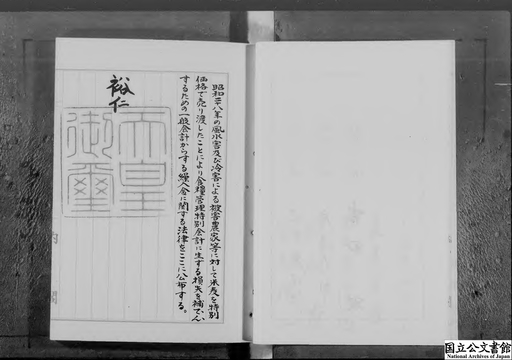 昭和二十八年の風水害及び冷害による被害農家等に対して米麦を特別
価格で売り渡したことにより食糧管理特別会計に生ずる損失を補てん
するための一般会計からする繰入金に関する法律をここに公布する。
裕仁
天皇
御璽
国立公文書館
National Archives of Japan